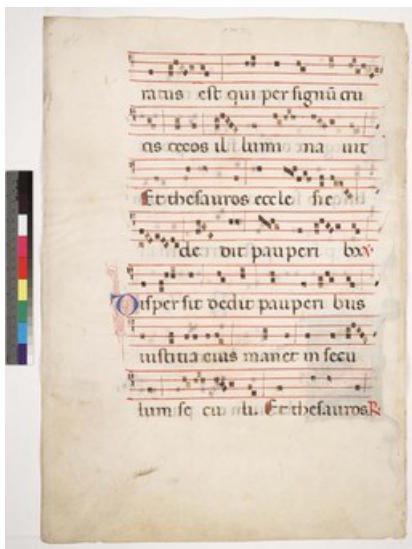 ratus est qui per signū cru
cis cecos il lumi na uit
Et thesauros eccle sie
de dit pau peri bꝫ
Disper sit dedit pau peri bus
iustitia eius manet in secu
lum se cu li. Et thesauros R